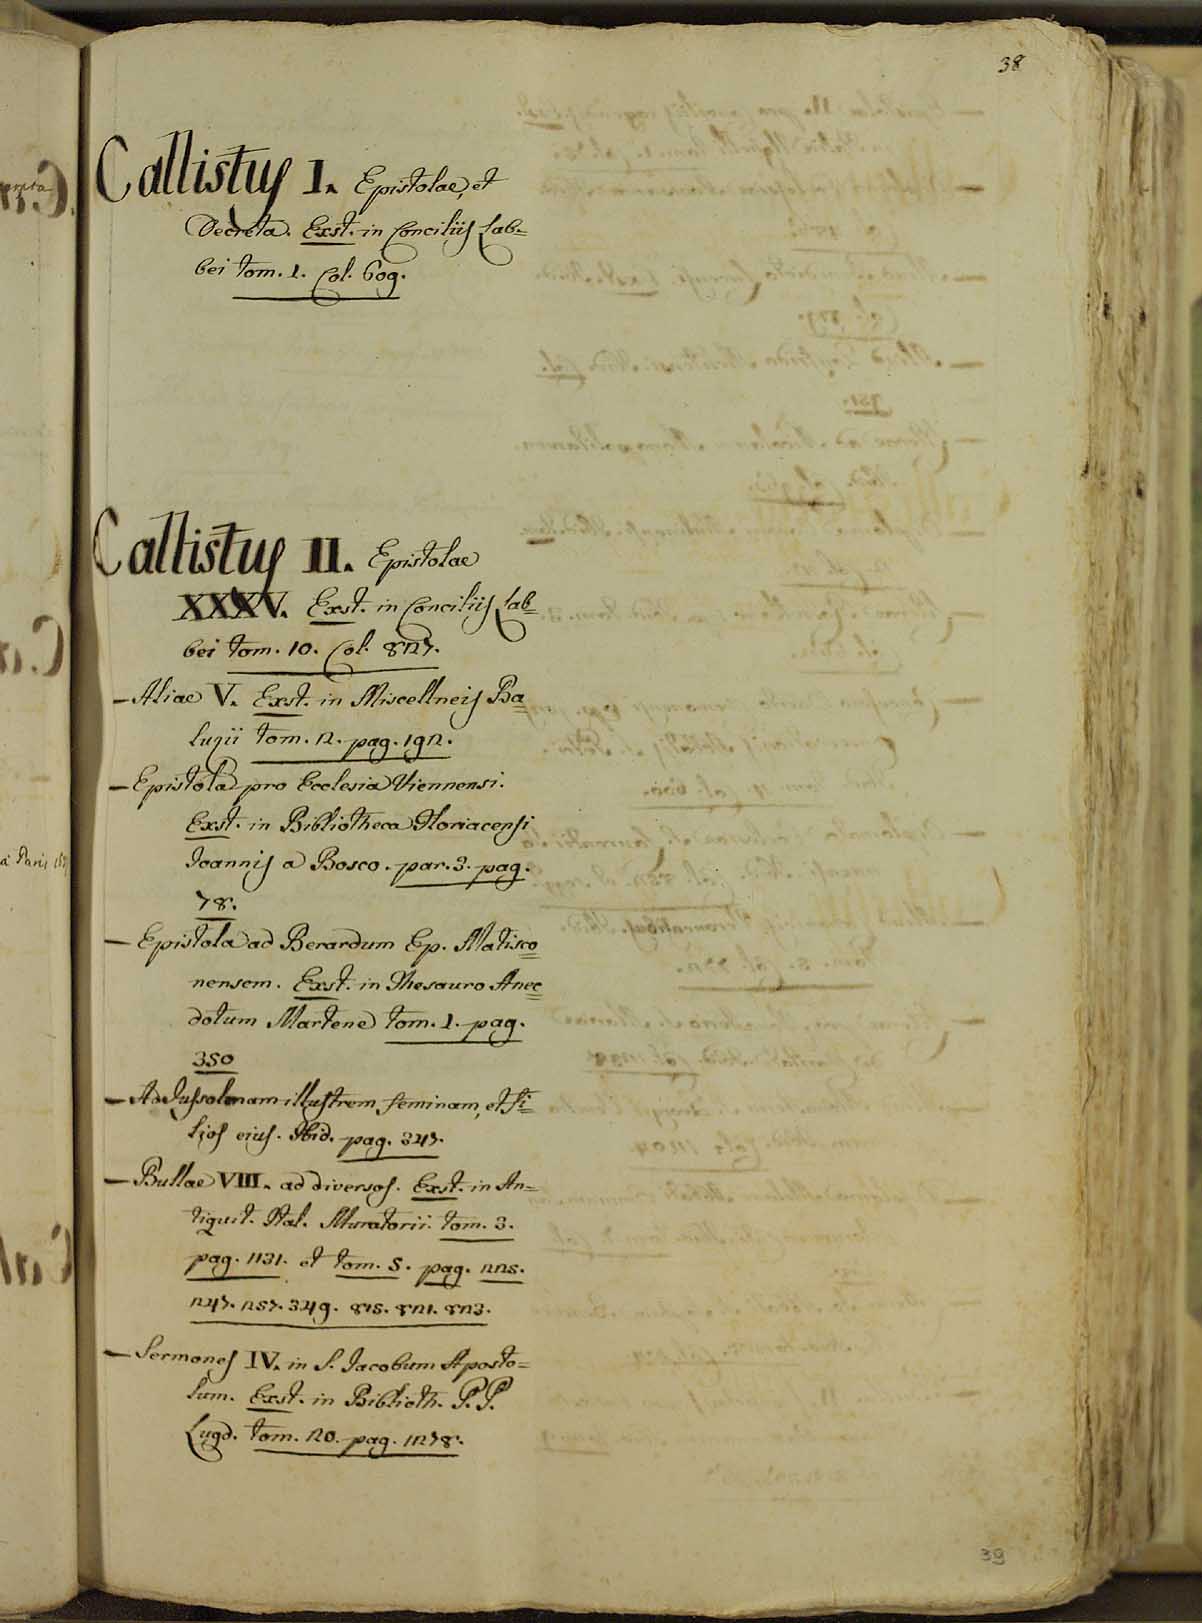 38
Callistus I. Epistolae, et
Decreta. Exst. in Conciliis Lab=
bei tom. 1. Col. 609.
Callistus II. Epistolae
XXXV. Exst. in Conciliis Lab=
bei tom. 10. Col. 827.
– Aliae V. Exst. in Miscellneis Ba=
luzii tom. 2. pag. 192.
– Epistola pro Ecclesia Viennensi.
Exst. in Bibliotheca Floriacensi
Joannis a Bosco. par. 3. pag.
78.
– Epistola ad Berardum Ep. Matisco=
nensem. Exst. in Thesauro Anec=
dotum Martene tom. 1. pag.
350
– Ad illustrem feminam, et fi=
lios eius. Ibid. pag. 347.
– Bullae VIII. ad diversos. Exst. in An=
tiquit. Ital. Muratorii. tom. 3.
pag. 1131. et tom. 5. pag. 225.
247. 257. 349. 815. 821. 823.
– Sermones IV. in S. Jacobum Aposto=
lum. Exst. in Biblioth. P.P.
Lugd. tom. 20. pag. 1278.
39